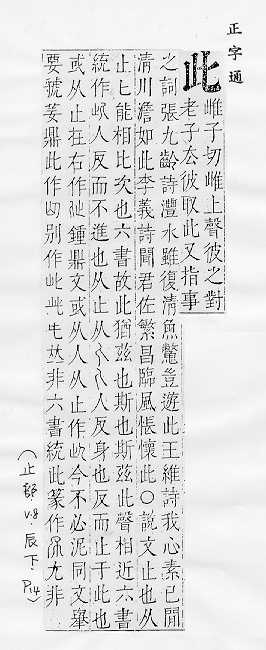 正字通
此 雌子切雌上聲彼之對
老子去彼取此又指事
之詞張九齡詩灃水雖復清魚鼈豈遊此王維詩我心素已閒
清川澹如此李義詩聞君佐繁昌臨風悵懷此○說文止也从
止匕能相比次也六書故此猶兹也斯也斯兹此聲相近六書
統作人反而不進也从止从人反身也反而止于此也
或从止在右作鍾鼎文或从人从止作今不必泥同文舉
要虢姜鼎此作别作非六書統此篆作尤非
(止部 V.8. 辰下. P14)